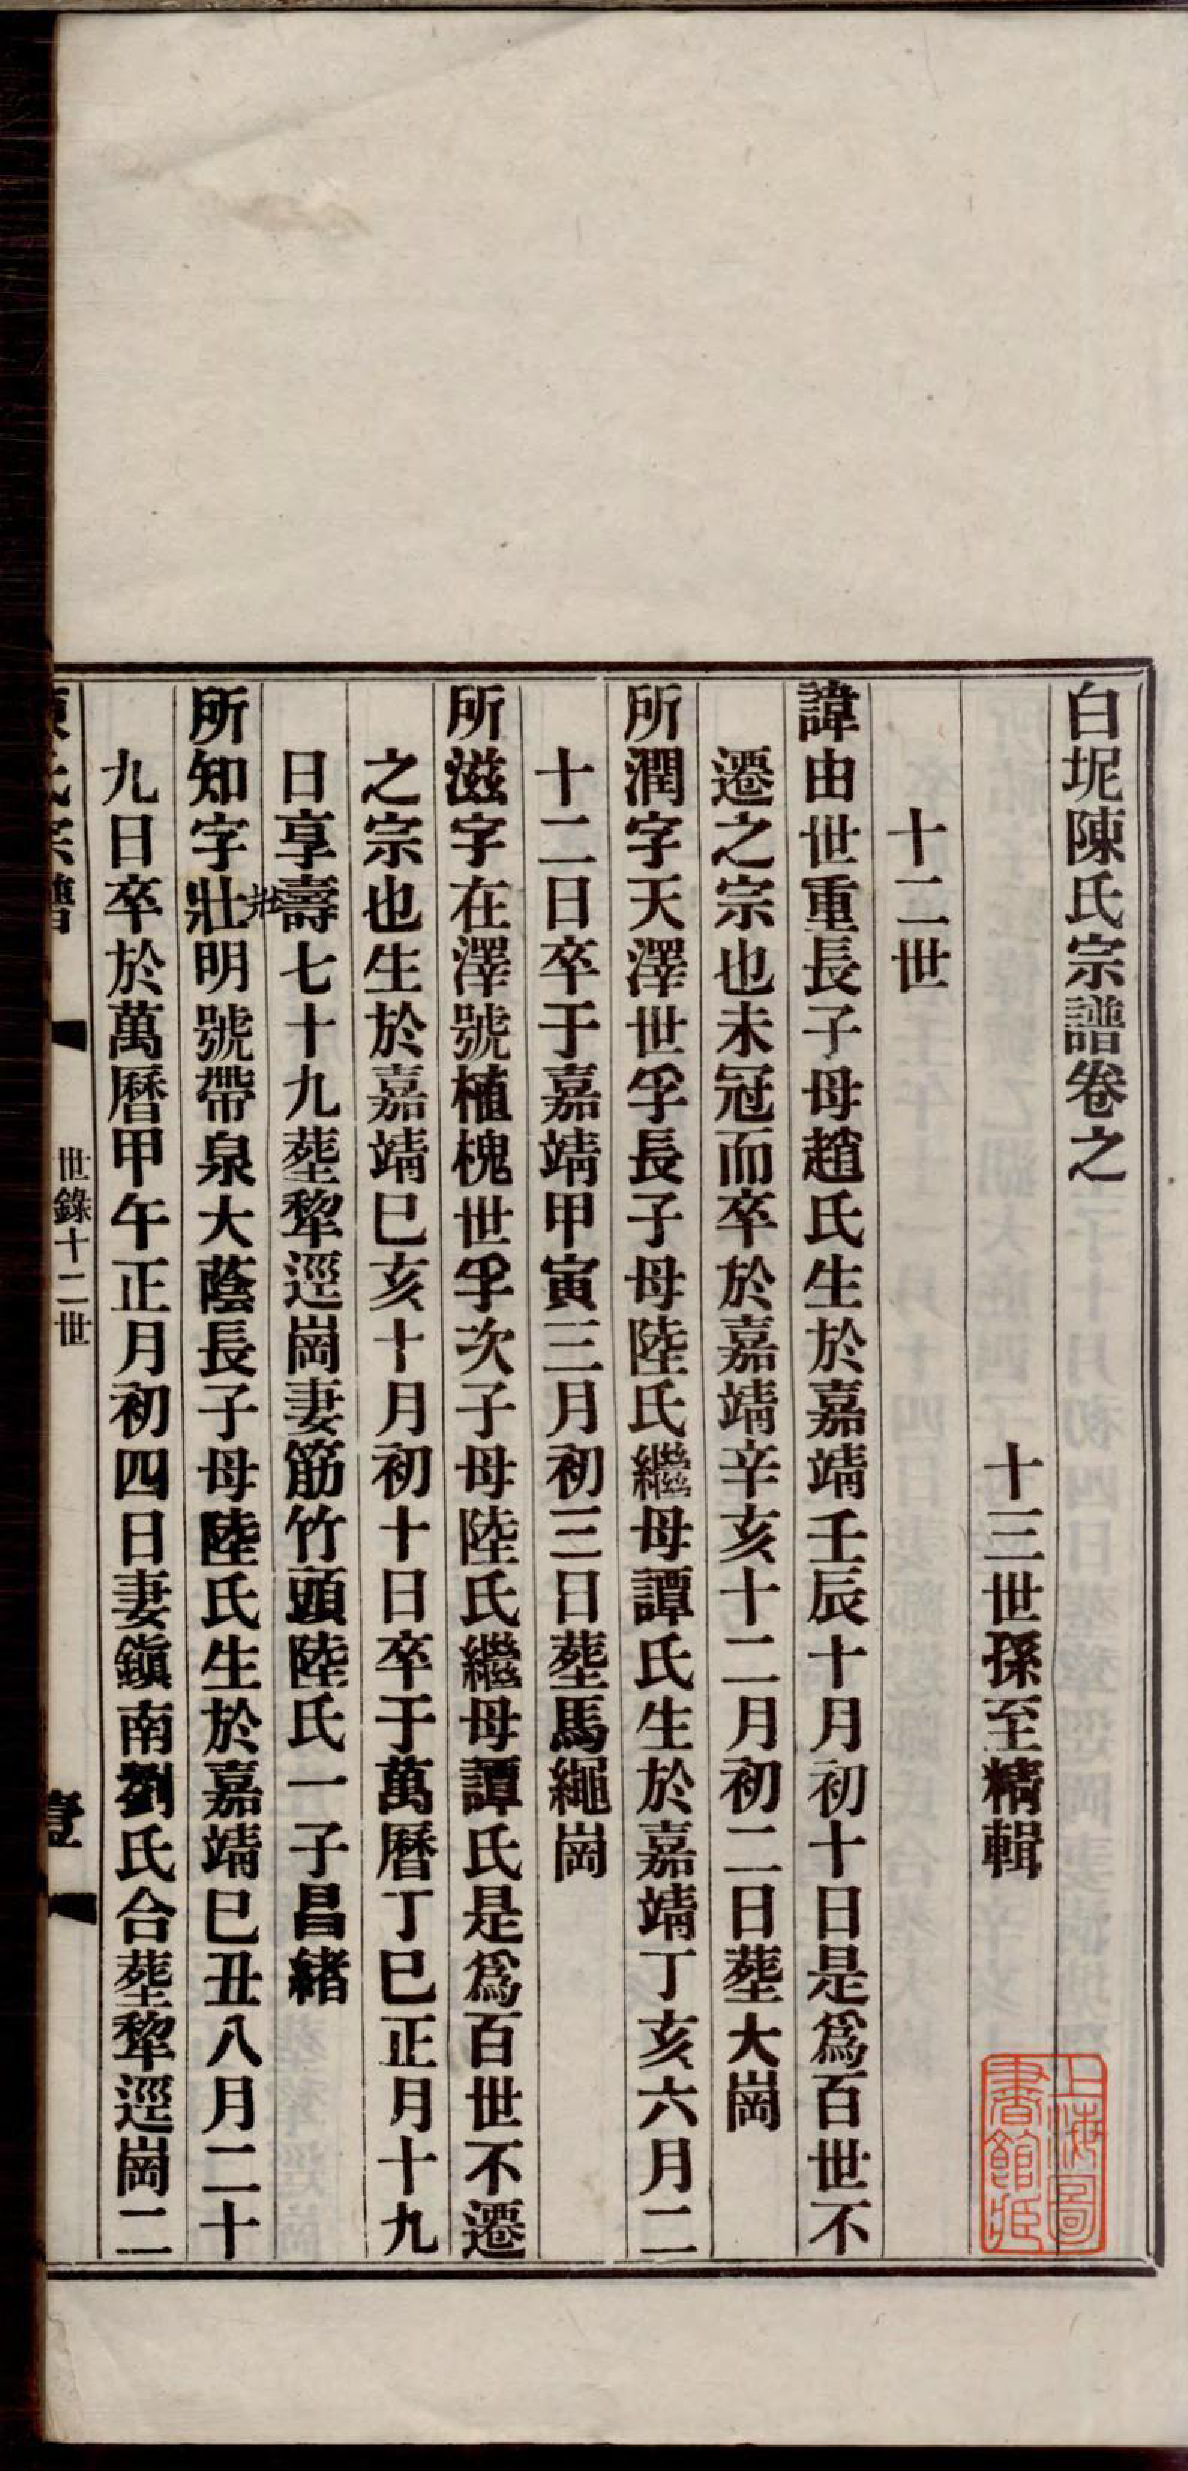 白坭陳氏宗譜卷之
十三世孫至精輯
十二世
諱由世重長子母趙氏生於嘉靖壬辰十月初十日是爲百世不
遷之宗也未冠而卒於嘉靖辛亥十二月初二日塟大崗
所潤字天澤世孚長子母陸氏繼母譚氏生於嘉靖丁亥六月二
十二日卒于嘉靖甲寅三月初三日塟馬繩崗
所滋字在澤號植槐世孚次子母陸氏繼母譚氏是爲百世不遷
之宗也生於嘉靖巳亥十月初十日卒于萬曆丁巳正月十九
日享壽七十九塟犂逕崗妻筋竹頭陸氏一子昌緒
所知字壯明號帶泉大蔭長子母陸氏生於嘉靖巳丑八月二十
九日卒於萬曆甲午正月初四日妻鎭南劉氏合塟犂逕崗二
陳氏宗譜
世錄十二世
壹
上海圖書館藏